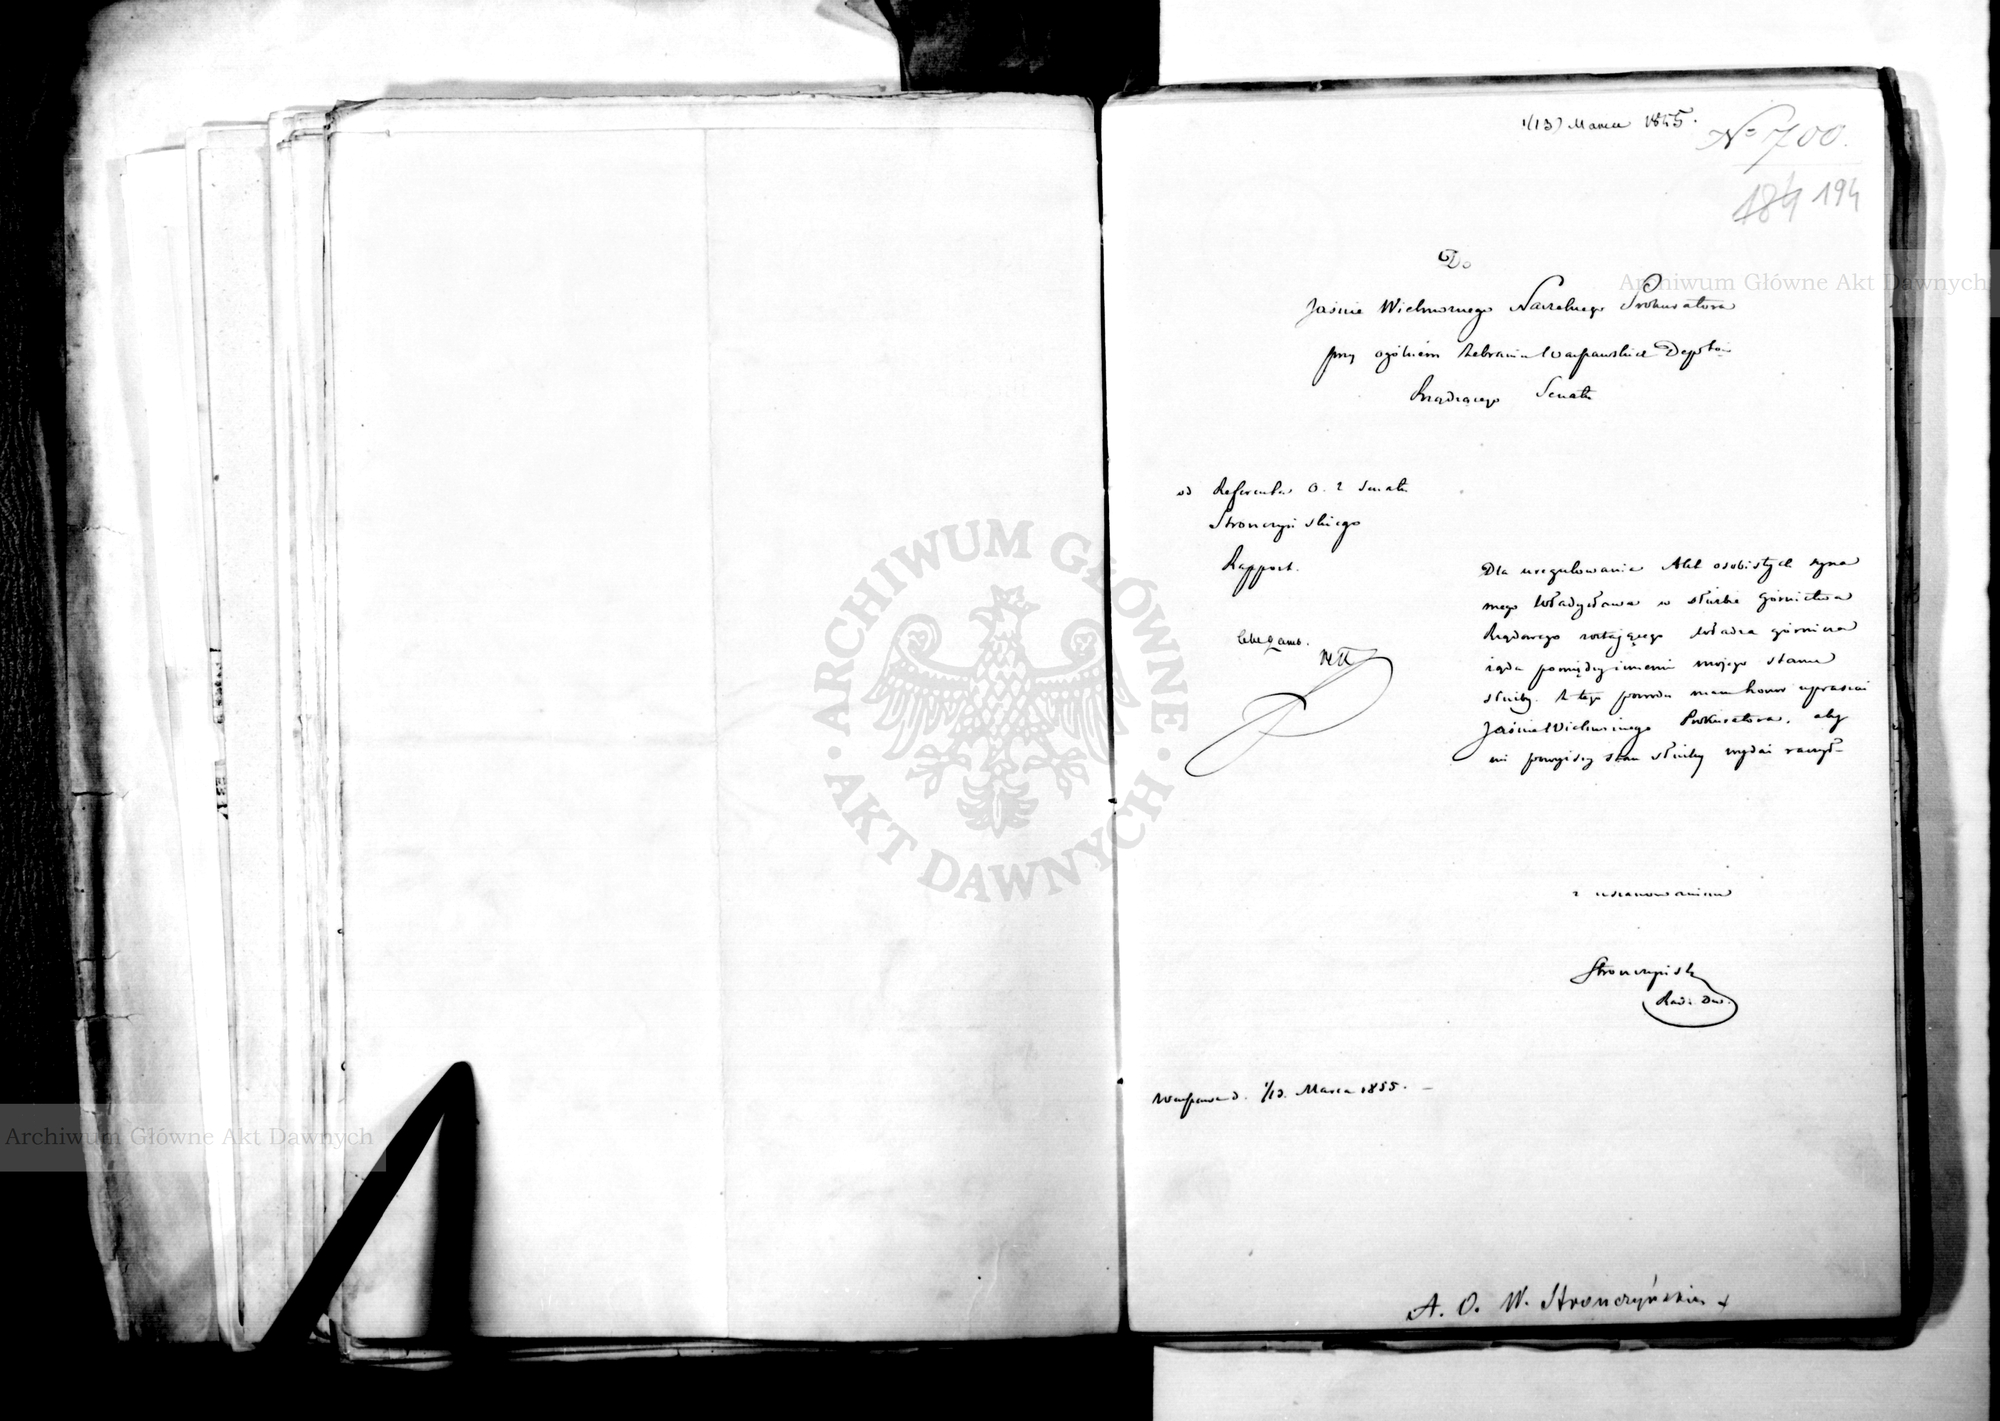 1/(13) Marca 1855.
No 700.
184 194
Do
Jaśnie Wielmożnego Naczelnego Prokuratora
przy ogólném Zebraniu Warszawskich Depttów
Rządzącego Senatu
od Referenta O. Z Senatu
Stronczyńskiego
Rapport.
Dla uregulowania Akt osobistych syna
mego Władysława w służbie Górnictwa
Rządowego zostającego Władza górnicza
żąda pomiędzy innemi mojego stanu
służby. Z tego powodu mam honor upraszać
Jaśnie Wielmożnego Prokuratora, aby
mi powyższy stan służby wydać raczył
z uszanowaniem
Stronczyński
Rad. Dw.
Warszawa d. 1/13. Marca 1855.
A. O. W. Stronczyńskiego
Archiwum Główne Akt Dawnych
Archiwum Główne Akt Dawnych
ARCHIWUM GŁÓWNE
AKT DAWNYCH